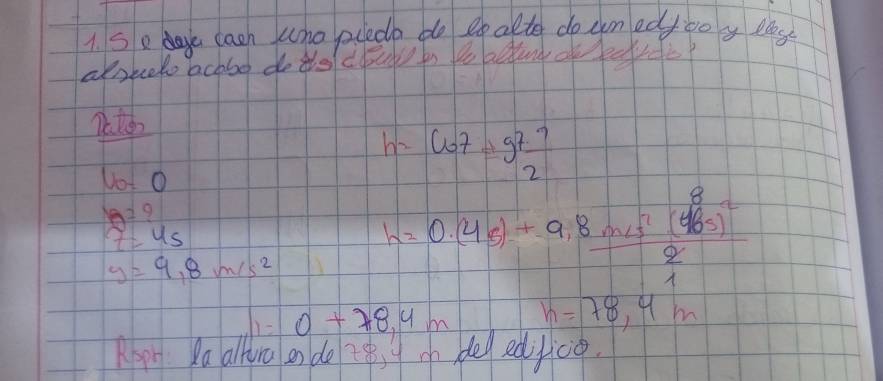 1. Se deja caer una piedra de lo alto de un edificio y llega
al suelo acabo de 4s ¿Cuál es la altura del edificio?
Datos
h= Vo t + gt²
2
Vo= 0
h= ?
t= 4s
h= 0.(4s) + 9,8 m/s² (16s)²
8
2
1
g= 9,8 m/s²
h= 0 + 78,4 m h= 78,4 m
Rspt: la altura es de 78,4 m del edificio.